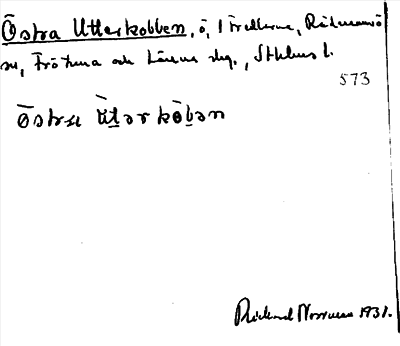 Östra Utterkobben, ö, i Frällorna, Rådmansö
sn, Frötuna och Länna skg., Sthlms l.
573
östra ùtər kòbən
Rickard Norrman 1931.